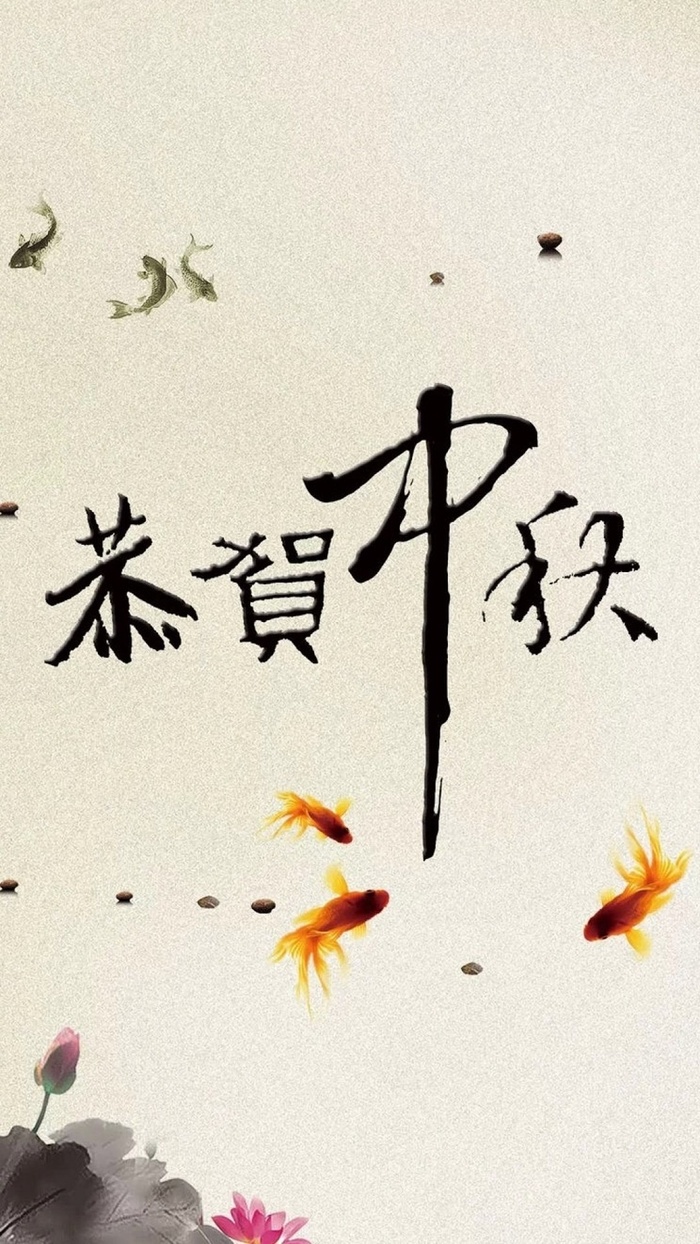 恭賀中秋